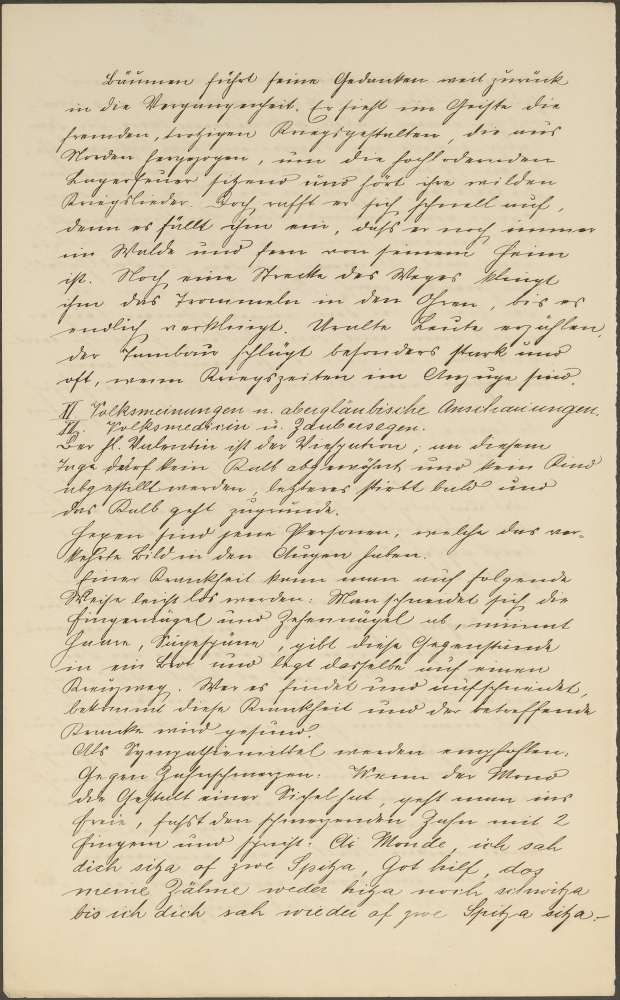 Bäumen führt seine Gedanken weit zurück
in die Vergangenheit. Er sieht im Geiste die
fremden, trotzigen Kriegsgestalten, die aus
Norden hergezogen, um die hochlodernden
Lagerfeuer sitzend und hört ihre wilden
Kriegslieder. Doch rafft er sich schnell auf,
denn es fällt ihm ein, dass er noch immer
im Walde und fern von seinem Heim
ist. Noch eine Strecke des Weges klingt
ihm das Trommeln in den Ohren, bis es
endlich verklingt. Uralte Leute erzählen,
der Tambour schlägt besonders stark und
oft, wenn Kriegszeiten im Anzuge sind.
II Volksmeinungen u. abergläubische Anschauungen.
Volksmedicin u. Zaubersegen.
Der hl. Valentin ist der Viehpatron; an diesem
Tage darf kein Kalb abgewöhnt und kein Kind
abgestillt werden, letzteres stirbt bald und
das Kalb geht zugrunde.
Hexen sind jene Personen, welche das ver-
kehrte Bild in den Augen haben.
Einer Krankheit kann man auf folgende
Weise leicht los werden: Man schneidet sich die
Fingernägel und Zehennägel ab, nimmt
Haare, Sägespäne, gibt diese Gegenstände
in ein Brot und legt dasselbe auf einen
Kreuzweg. Wer es findet und aufschneidet,
bekommt diese Krankheit und der betreffende
Kranke wird gesund.
Als Sympathiemittel werden empfohlen:
Gegen Zahnschmerzen: Wenn der Mond
die Gestalt einer Sichel hat, geht man ins
Freie, fasst den schmerzenden Zahn mit 2
Fingern und spricht: Ai Monde, ich sah
dich sitza of zwe Spitza, Got hilf, das
meine Zähne weder hitza noch schwitza
bis ich dich sah wieder of zwe Spitza sitza.–